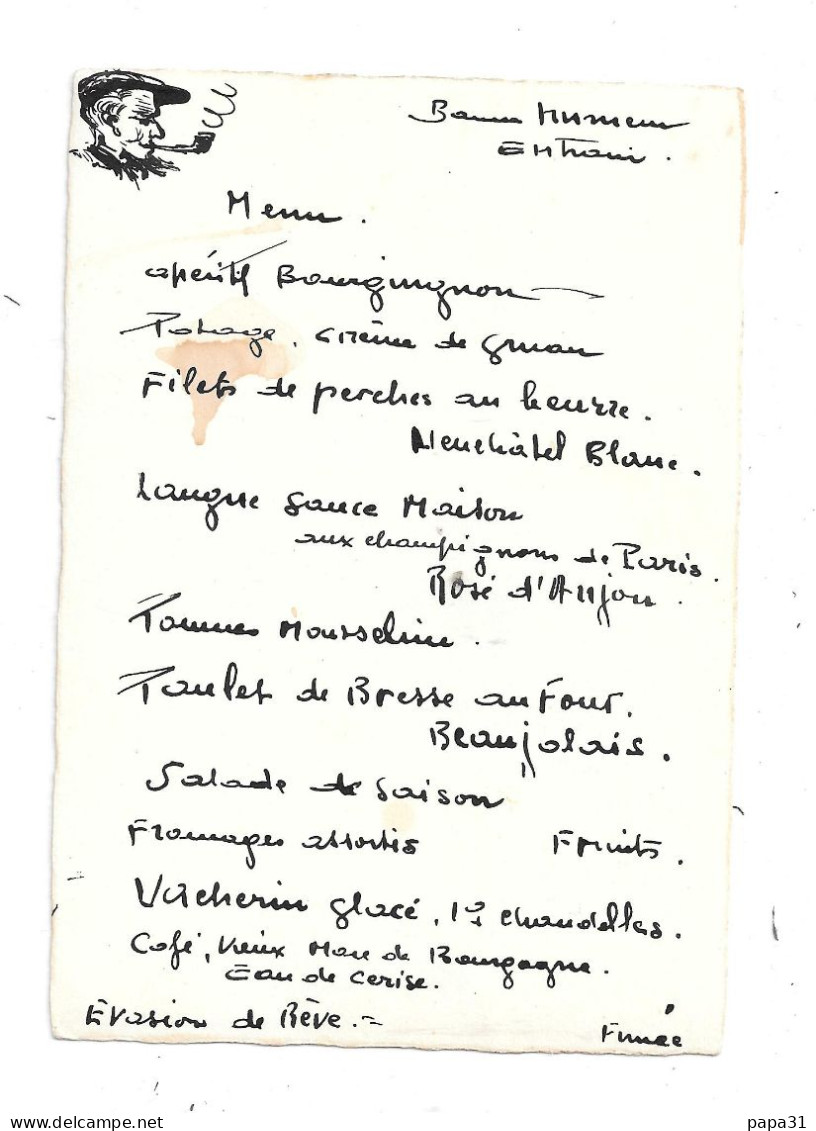 Bonne Humeur
Entrain.
Menu.
apéritif Bourguignon
Potage, crème de gruau
Filets de perches au beurre.
Neuchâtel Blanc.
Langue sauce Maison
aux champignons de Paris.
Rosé d'Anjou.
Pommes Mousseline.
Poulet de Bresse au Four.
Beaujolais.
Salade de saison
Fromages assortis Fruits.
Vacherin glacé, chandelles.
Café, Vieux Marc de Bourgogne.
Eau de cerise.
Evasion de Rêve.=
Fumée
delcampe.net
papa31